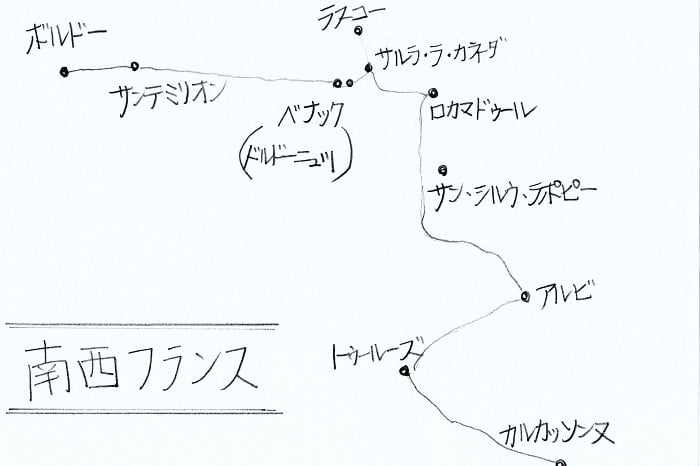 ラスコー
ボルドー
サルラ・ラ・カネダ
サンテミリオン
ベナック
ロカマドゥール
(ドルドーニュ)
サン・シルク・ラポピー
アルビ
トゥールーズ
南西フランス
カルカッソンヌ